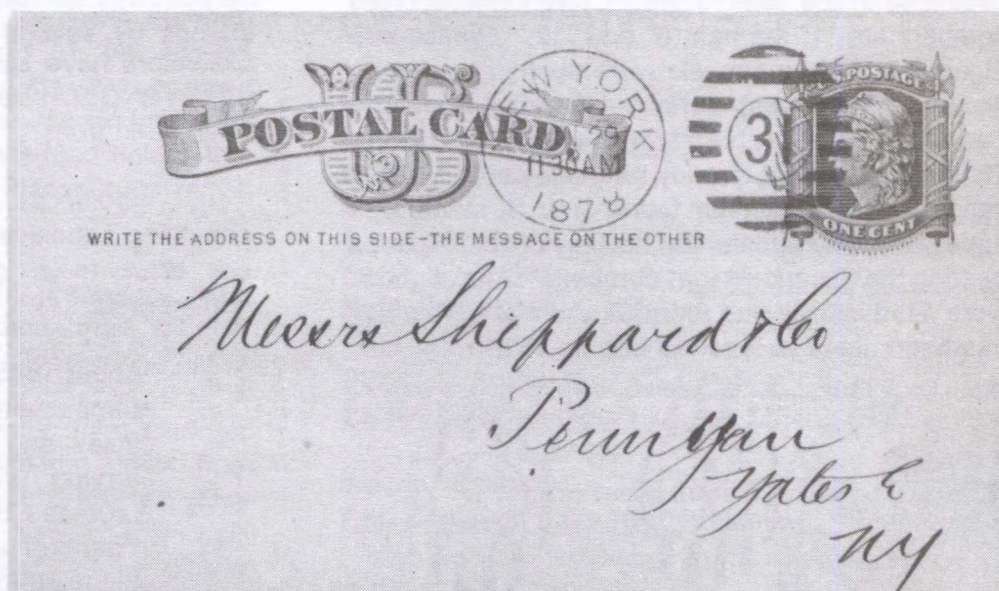 US
POSTAL CARD.
NEW YORK
29
11 30 AM
1878
3
U.S. POSTAGE
ONE CENT
WRITE THE ADDRESS ON THIS SIDE-THE MESSAGE ON THE OTHER
Messrs Sheppard & Co
Penn Yan
Yates Co
NY